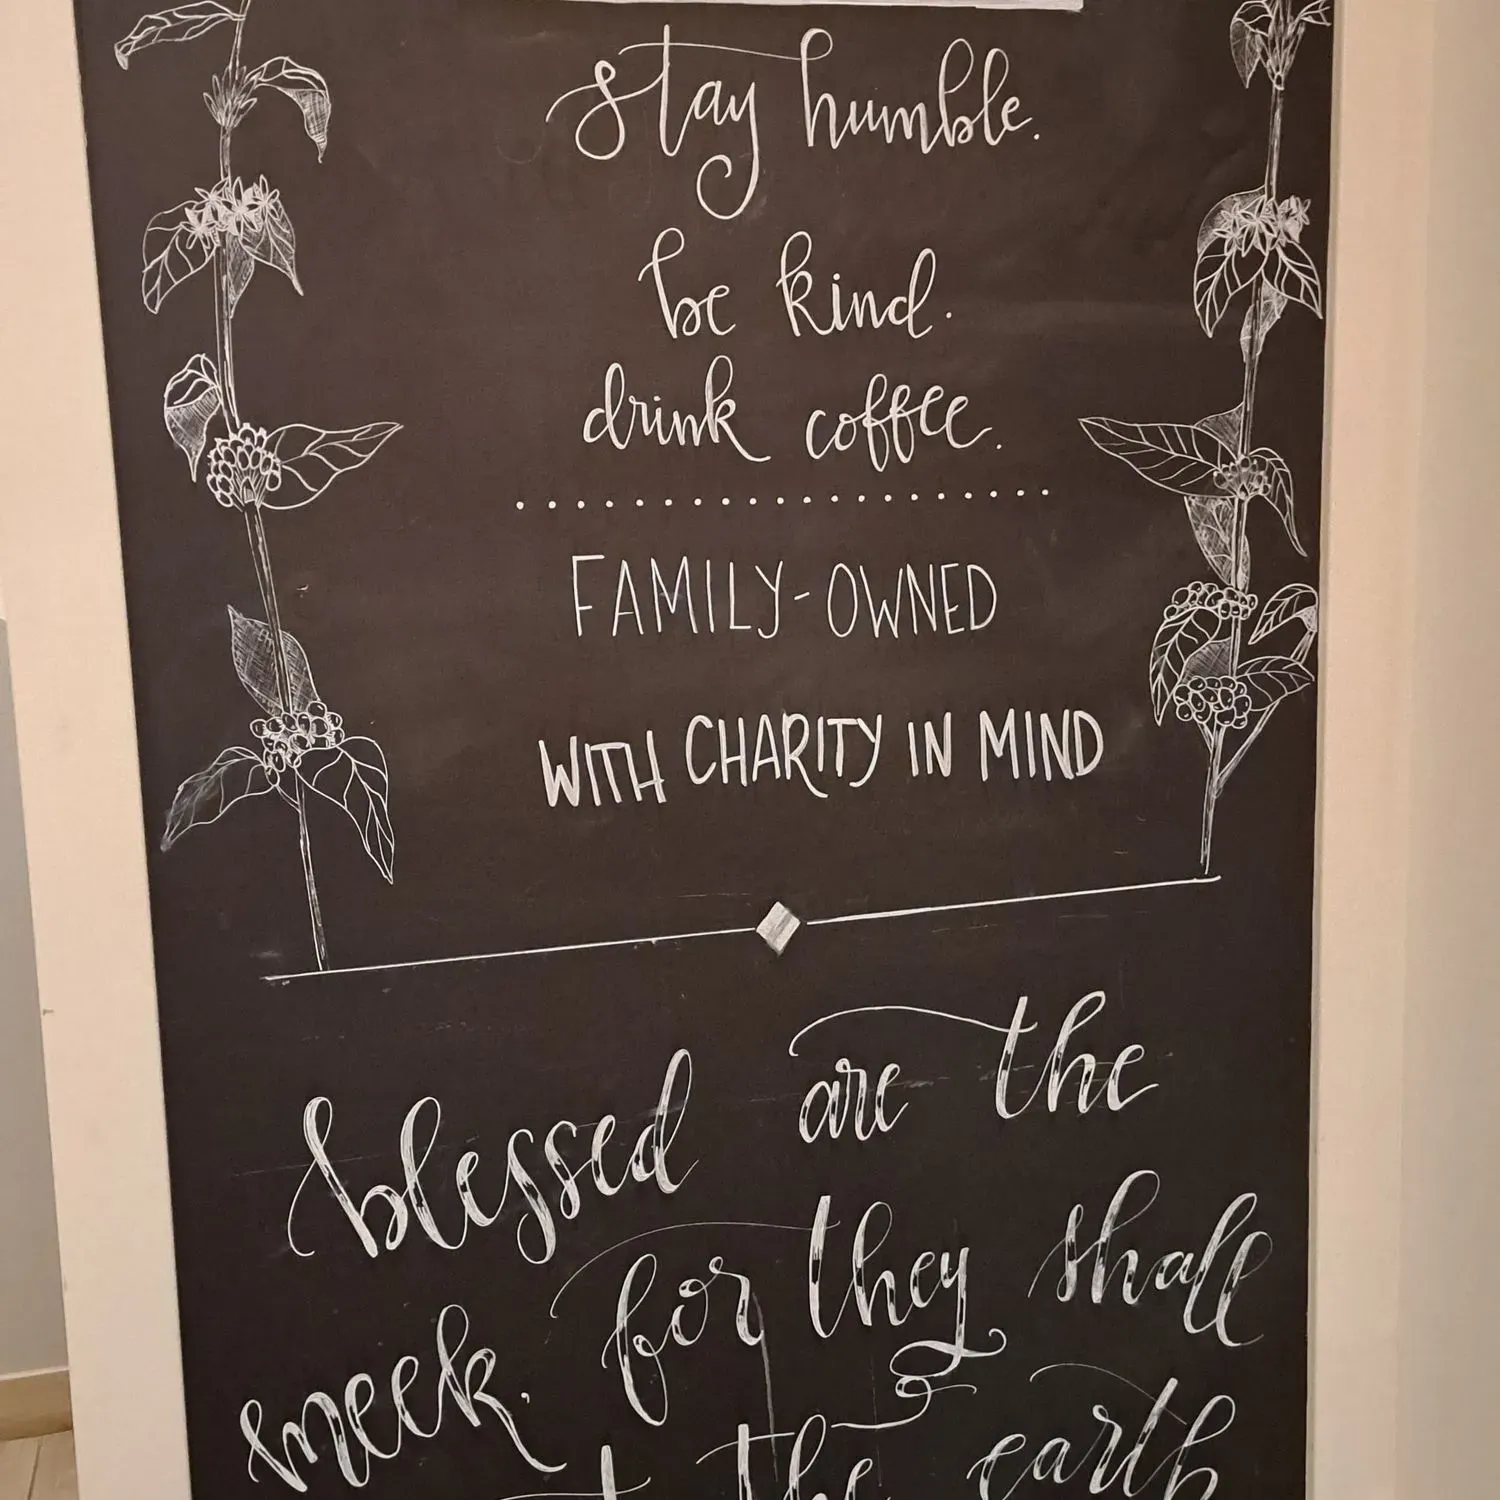 stay humble.
be kind.
drink coffee.
FAMILY-OWNED
WITH CHARITY IN MIND
blessed are the
meek, for they shall
the earth